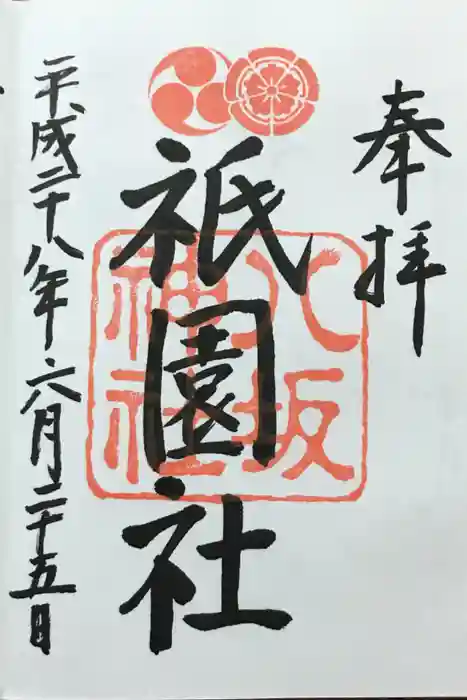 奉拝
八坂
神社
祇園社
平成二十八年六月二十五日